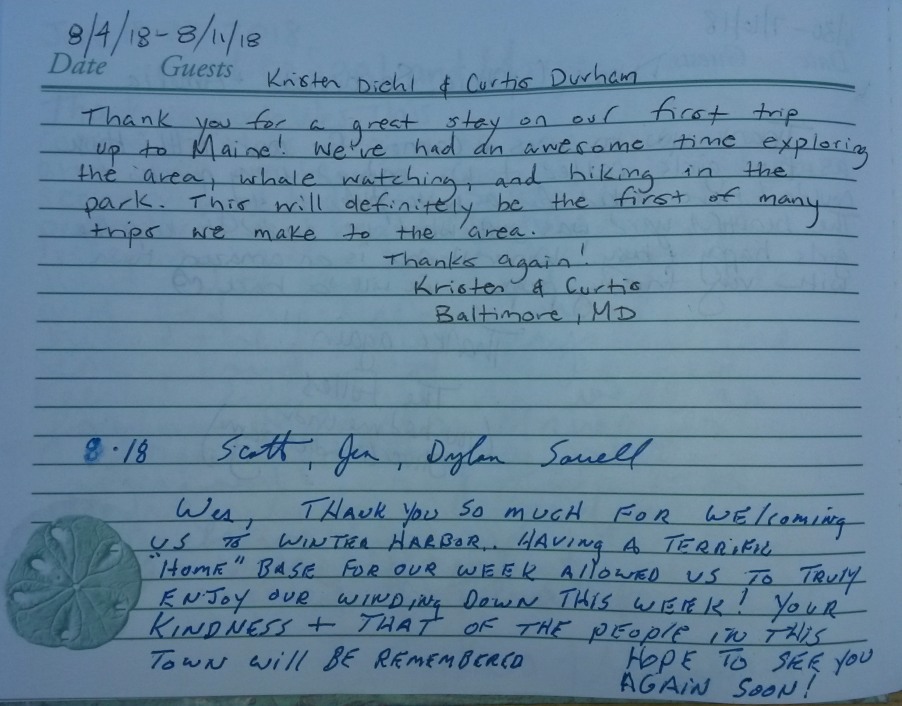 8/4/18-8/11/18
Date Guests Kristen Diehl & Curtis Durham
Thank you for a great stay on our first trip
up to Maine! We've had an awesome time exploring
the area, whale watching, and hiking in the
park. This will definitely be the first of many
trips we make to the area.
Thanks again!
Kristen & Curtis
Baltimore, MD
8.18 Scott, Jen, Dylan Sowell
Wes, THANK YOU SO MUCH FOR WElcoming
US TO WINTER HARBOR.. HAVING A TERRIFIC
"HOME" BASE FOR OUR WEEK AllOWED US TO TRULY
ENJOY OUR WINDING DOWN THIS WEEK! YOUR
KINDNESS + THAT OF THE PEOPlE IN THIS
TOWN Will BE REMEMBERED HOPE TO SEE YOU
AGAIN SOON!